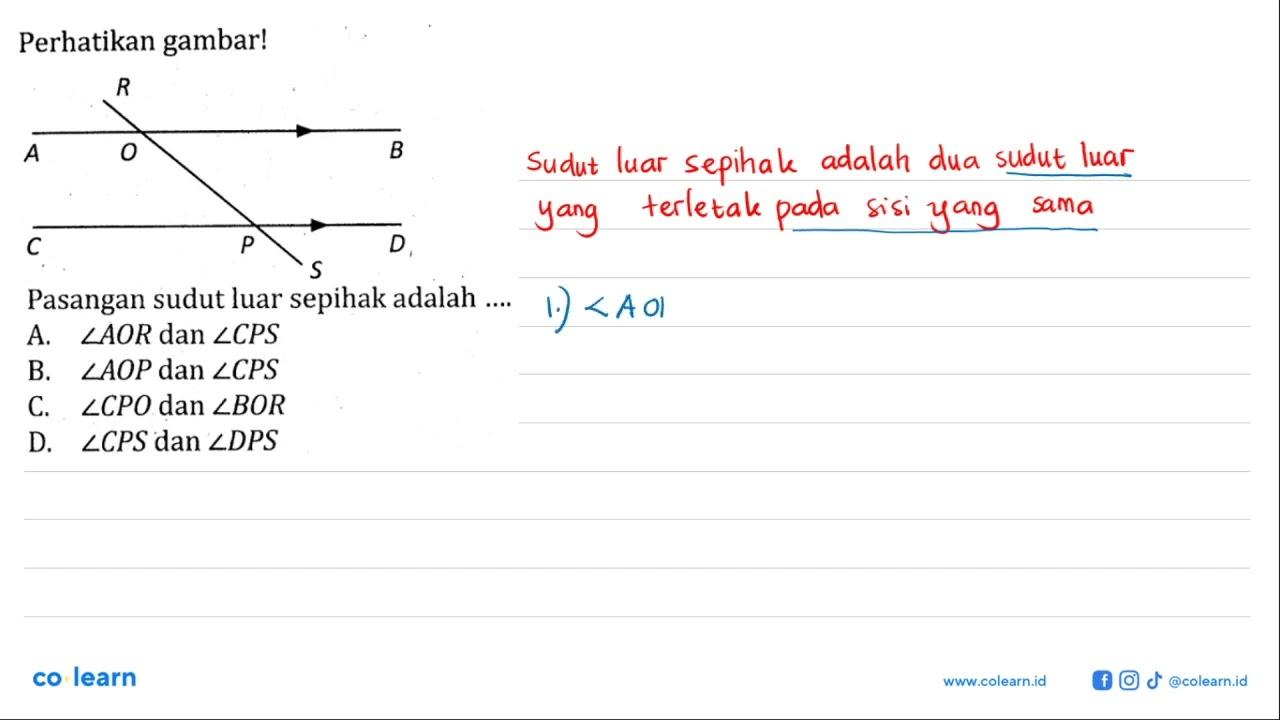 Perhatikan gambar!
R
A
O
B
C
P
D
S
Sudut luar sepihak adalah dua sudut luar
yang terletak pada sisi yang sama
Pasangan sudut luar sepihak adalah ....
A. ∠AOR dan ∠CPS
B. ∠AOP dan ∠CPS
C. ∠CPO dan ∠BOR
D. ∠CPS dan ∠DPS
1.) <AOI
co learn
www.colearn.id
@colearn.id